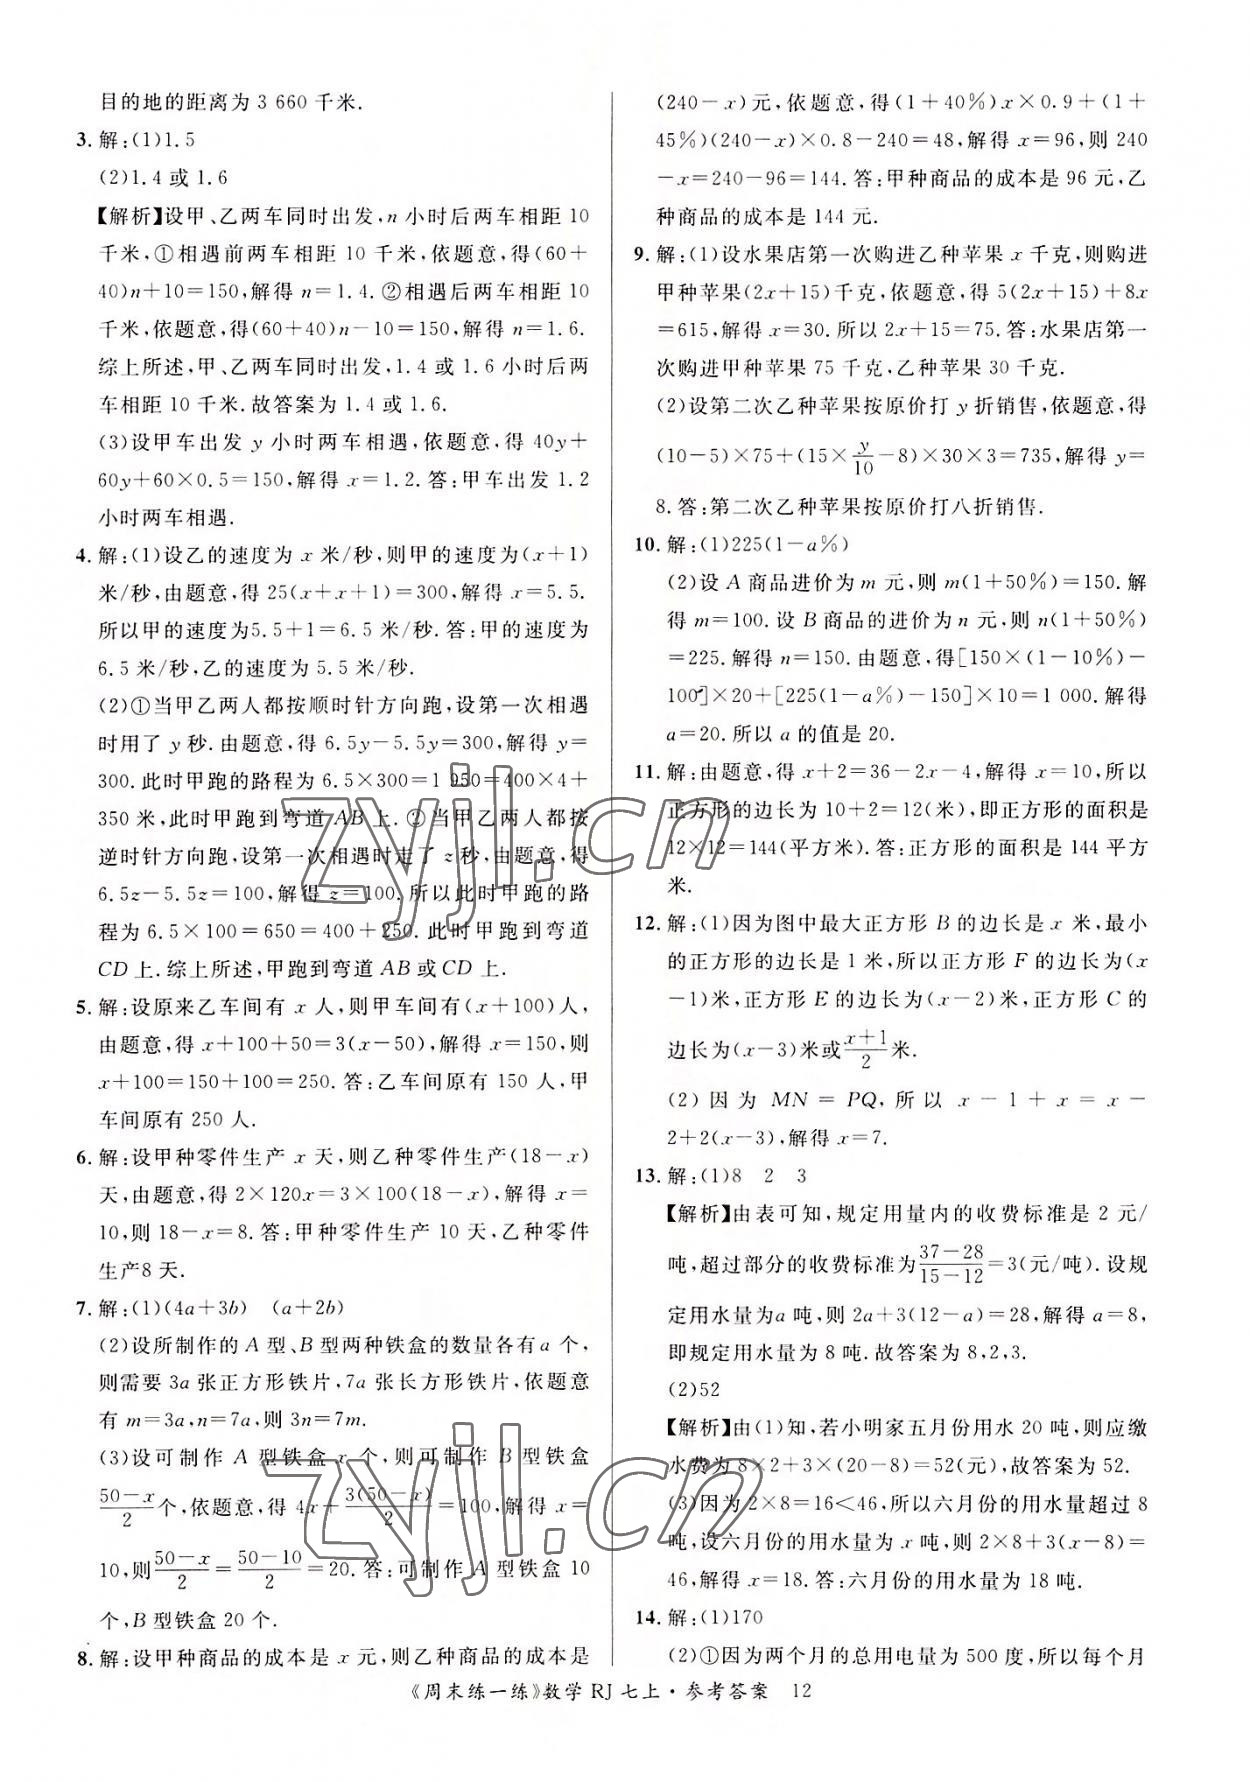 目的地的距离为 3 660 千米.
3. 解:(1)1.5
(2)1.4 或 1.6
【解析】设甲、乙两车同时出发,n 小时后两车相距 10
千米,①相遇前两车相距 10 千米,依题意,得(60+
40)n+10=150,解得 n=1.4.②相遇后两车相距 10
千米,依题意,得(60+40)n-10=150,解得 n=1.6.
综上所述,甲、乙两车同时出发,1.4 或 1.6 小时后两
车相距 10 千米.故答案为 1.4 或 1.6.
(3)设甲车出发 y 小时两车相遇,依题意,得 40y+
60y+60×0.5=150,解得 x=1.2.答:甲车出发 1.2
小时两车相遇.
4. 解:(1)设乙的速度为 x 米/秒,则甲的速度为(x+1)
米/秒,由题意,得 25(x+x+1)=300,解得 x=5.5.
所以甲的速度为5.5+1=6.5 米/秒.答:甲的速度为
6.5 米/秒,乙的速度为 5.5 米/秒.
(2)①当甲乙两人都按顺时针方向跑,设第一次相遇
时用了 y 秒.由题意,得 6.5y-5.5y=300,解得 y=
300.此时甲跑的路程为 6.5×300=1 950=400×4+
350 米,此时甲跑到弯道 AB 上.②当甲乙两人都按
逆时针方向跑,设第一次相遇时走了 z 秒,由题意,得
6.5z-5.5z=100,解得 z=100.所以此时甲跑的路
程为 6.5×100=650=400+250.此时甲跑到弯道
CD 上.综上所述,甲跑到弯道 AB 或 CD 上.
5. 解:设原来乙车间有 x 人,则甲车间有(x+100)人,
由题意,得 x+100+50=3(x-50),解得 x=150,则
x+100=150+100=250.答:乙车间原有 150 人,甲
车间原有 250 人.
6. 解:设甲种零件生产 x 天,则乙种零件生产(18-x)
天,由题意,得 2×120x=3×100(18-x),解得 x=
10,则 18-x=8.答:甲种零件生产 10 天,乙种零件
生产8 天.
7. 解:(1)(4a+3b) (a+2b)
(2)设所制作的 A 型、B 型两种铁盒的数量各有 a 个,
则需要 3a 张正方形铁片,7a 张长方形铁片,依题意
有 m=3a,n=7a,则 3n=7m.
(3)设可制作 A 型铁盒 x 个,则可制作 B 型铁盒
(50-x)/2 个,依题意,得 4x+3(50-x)/2=100,解得 x=
10,则(50-x)/2=(50-10)/2=20.答:可制作 A 型铁盒 10
个,B 型铁盒 20 个.
8. 解:设甲种商品的成本是 x 元,则乙种商品的成本是
(240-x)元,依题意,得(1+40%)x×0.9+(1+
45%)(240-x)×0.8-240=48,解得 x=96,则 240
-x=240-96=144.答:甲种商品的成本是 96 元,乙
种商品的成本是 144 元.
9. 解:(1)设水果店第一次购进乙种苹果 x 千克,则购进
甲种苹果(2x+15)千克,依题意,得 5(2x+15)+8x
=615,解得 x=30.所以 2x+15=75.答:水果店第一
次购进甲种苹果 75 千克,乙种苹果 30 千克.
(2)设第二次乙种苹果按原价打 y 折销售,依题意,得
(10-5)×75+(15×y/10-8)×30×3=735,解得 y=
8.答:第二次乙种苹果按原价打八折销售.
10. 解:(1)225(1-a%)
(2)设 A 商品进价为 m 元,则 m(1+50%)=150.解
得 m=100.设 B 商品的进价为 n 元,则 n(1+50%)
=225.解得 n=150.由题意,得[150×(1-10%)-
100]×20+[225(1-a%)-150]×10=1 000.解得
a=20.所以 a 的值是 20.
11. 解:由题意,得 x+2=36-2x-4,解得 x=10,所以
正方形的边长为 10+2=12(米),即正方形的面积是
12×12=144(平方米).答:正方形的面积是 144 平方
米.
12. 解:(1)因为图中最大正方形 B 的边长是 x 米,最小
的正方形的边长是 1 米,所以正方形 F 的边长为(x
-1)米,正方形 E 的边长为(x-2)米,正方形 C 的
边长为(x-3)米或(x+1)/2 米.
(2)因为 MN=PQ,所以 x-1+x=x-
2+2(x-3),解得 x=7.
13. 解:(1)8 2 3
【解析】由表可知,规定用量内的收费标准是 2 元/
吨,超过部分的收费标准为(37-28)/(15-12)=3(元/吨).设规
定用水量为a 吨,则 2a+3(12-a)=28,解得 a=8,
即规定用水量为 8 吨.故答案为 8,2,3.
(2)52
【解析】由(1)知,若小明家五月份用水 20 吨,则应缴
水费为 8×2+3×(20-8)=52(元),故答案为 52.
(3)因为 2×8=16<46,所以六月份的用水量超过 8
吨,设六月份的用水量为 x 吨,则 2×8+3(x-8)=
46,解得 x=18.答:六月份的用水量为 18 吨.
14. 解:(1)170
(2)①因为两个月的总用电量为 500 度,所以每个月
《周末练一练》数学 RJ 七上·参考答案 12
zyjl.cn
zyjl.cn